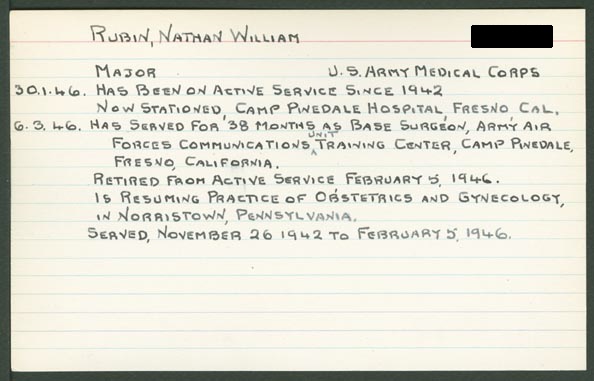 RUBIN, NATHAN WILLIAM
MAJOR U.S. ARMY MEDICAL CORPS
30.1.46. HAS BEEN ON ACTIVE SERVICE SINCE 1942
NOW STATIONED, CAMP PINEDALE HOSPITAL FRESNO CAL.
6.3.46. HAS SERVED FOR 38 MONTHS AS BASE SURGEON, ARMY AIR
FORCES COMMUNICATIONS UNIT TRAINING CENTER, CAMP PINEDALE,
FRESNO, CALIFORNIA.
RETIRED FROM ACTIVE SERVICE FEBRUARY 5, 1946.
IS RESUMING PRACTICE OF OBSTETRICS AND GYNECOLOGY,
IN NORRISTOWN, PENNSYLVANIA.
SERVED, NOVEMBER 26 1942 TO FEBRUARY 5, 1946.